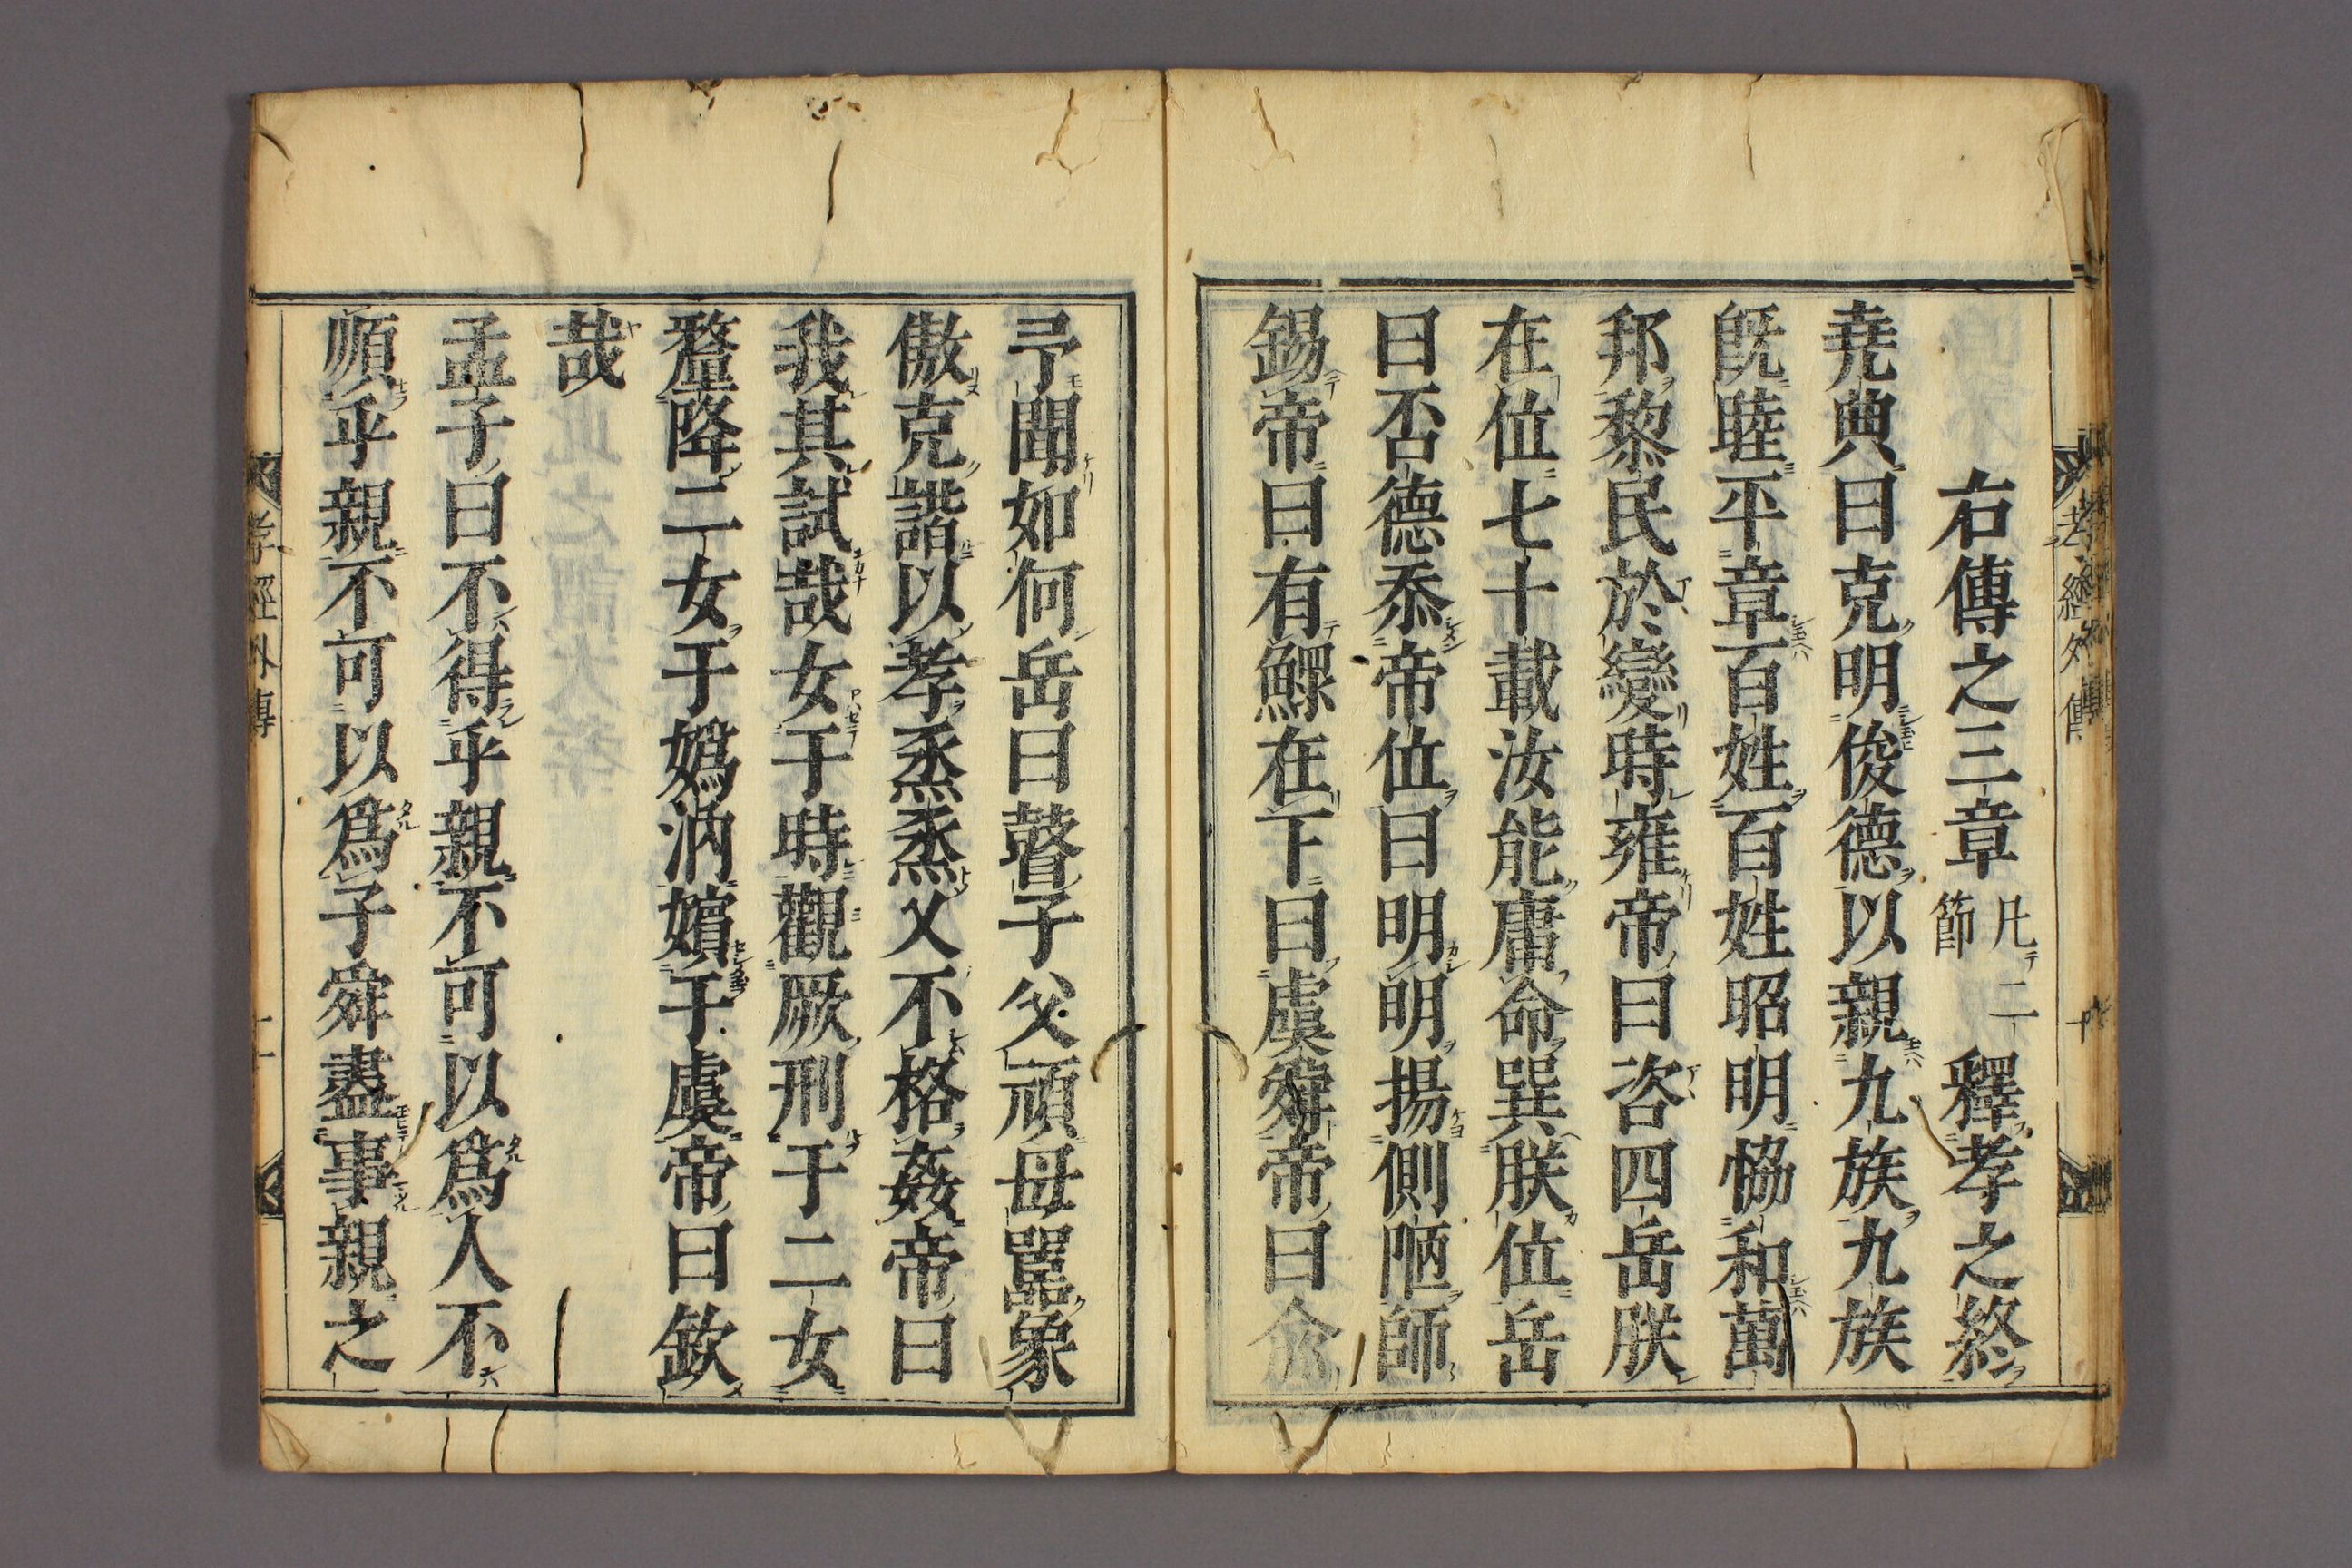 右傳之三章 凡二節 釋孝之終
堯典曰克明俊德以親九族九族
既睦平章百姓百姓昭明恊和萬
邦黎民於變時雍帝曰咨四岳朕
在位七十載汝能庸命巽朕位岳
曰否德忝帝位曰明明揚側陋師
錫帝曰有鰥在下曰虞舜帝曰俞
予聞如何岳曰瞽子父頑母嚚象
傲克諧以孝烝烝乂不格姦帝曰
我其試哉女于時觀厥刑于二女
釐降二女于嬀汭嬪于虞帝曰欽
哉
孟子曰不得乎親不可以爲人不
順乎親不可以爲子舜盡事親之
孝經外傳
十
孝經外傳